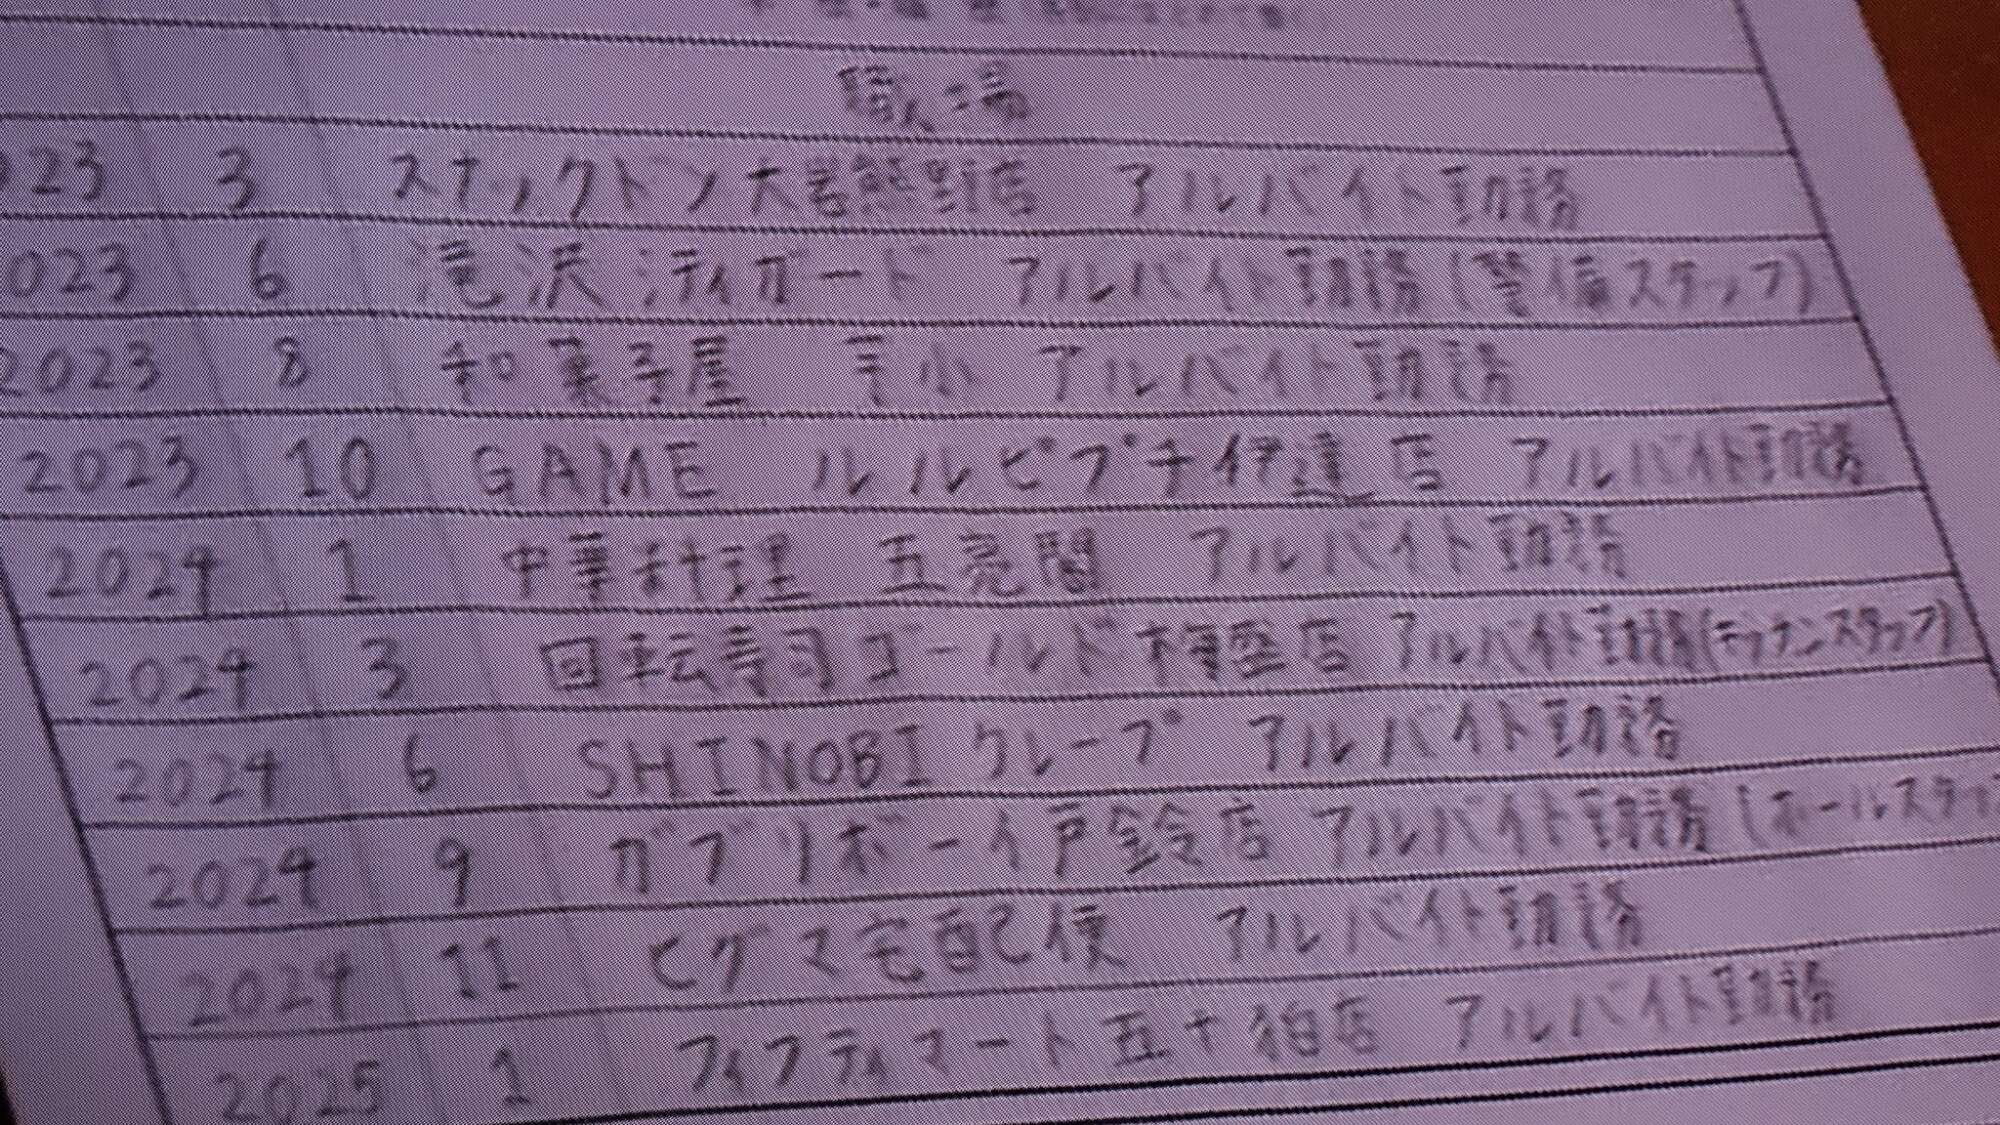 職場
23 3 スナックトン大岩熊野店 アルバイト勤務
023 6 滝沢ティガード アルバイト勤務(警備スタッフ)
2023 8 和菓子屋 アルバイト勤務
2023 10 GAME ルルピプチ伊達店 アルバイト勤務
2024 1 中華料理 五亮閣 アルバイト勤務
2024 3 回転寿司ゴールド 店 アルバイト勤務(キッチンスタッフ)
2024 6 SHINOBI クレープ アルバイト勤務
2024 9 ガブリボーイ戸鈴店 アルバイト勤務(ホールスタッ
2024 11 ヒグマ宅配便 アルバイト勤務
2025 1 フィフティマート五十狛店 アルバイト勤務